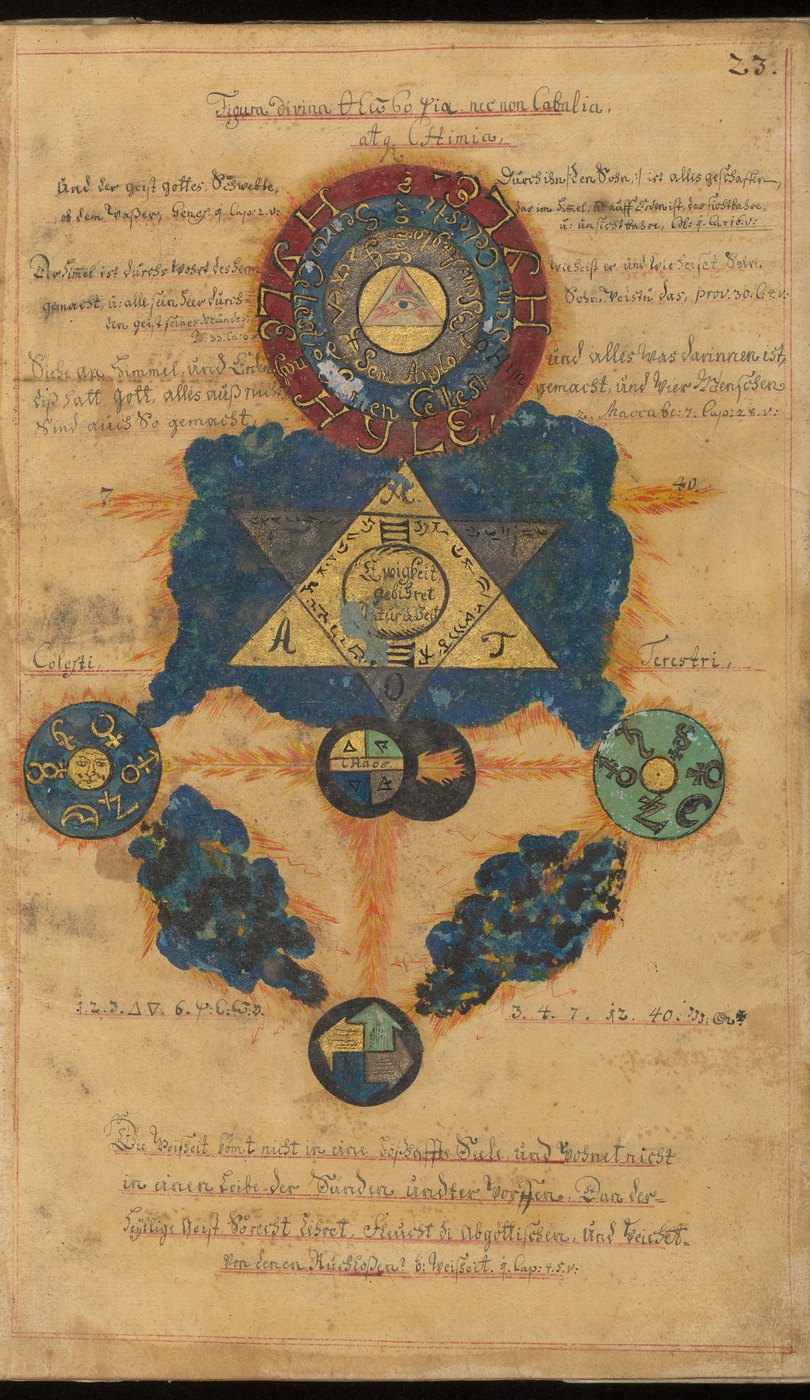 23.
Figura divina θεω6οφια nec non Cabalia,
atq CHimia,
Und der geist gottes, Schwebte,
ob dem Waßer, Genes. 1. Cap: 2. v:
Durch ihn /: den Sohn :/ ist alles geschaffen,
das im himel, u: auff Erden ist, das sichtbahre,
u: unsichtbahre, Col: 1. Ca: 16. v:
Der himel ist durchs Wohrt des hern
gemacht, u: alle sein heer durch
den geist seines Mundes
Ps: 33. Ca: 6.
wie heist er, und wie heiset Sein
Sohn, Weistu das, prov. 30. C: 4. v:
Siehe an himmel, und Erden
diß hatt Gott, alles auß nich
Sind auch So gemacht,
und alles was darinnen ist,
gemacht, und Wier Menschen
2. Maccabe: 7. Cap: 28. v:
HYLE HYLE HYLE
7.
40.
A
T
O
Ewigkeit
gebihret
Natur u Zeit
Colesti,
Terestri,
CHaos
1. 2. 3. △ ▽. 6.
3. 4. 7. 12. 40.
Die Weißheit komt nicht in eine boßhaffte Seele, und Wohnet nicht
in einen Leibe der Sünden undter Worffen, Dan der
heyllige Geist So recht Lehret, fleucht di abgöttischen, und Weichet
von denen Ruchloßen? b: Weißeit. 1. Cap: 4. 5. v: